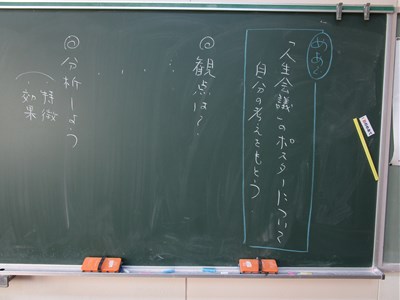 めあて
「人生会議」のポスターについて
自分の考えをもとう
◎観点は?
・
・
・
・
◎分析しよう
特徴
効果